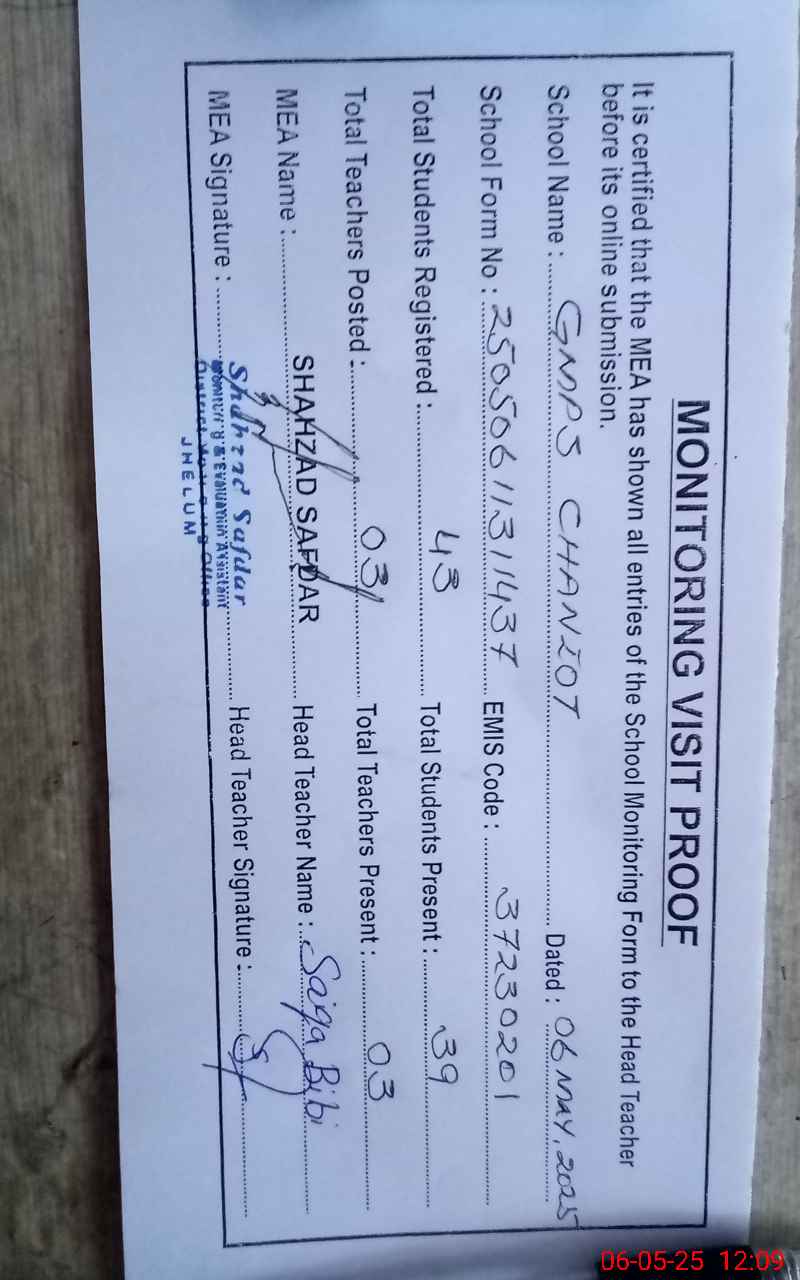 MONITORING VISIT PROOF
It is certified that the MEA has shown all entries of the School Monitoring Form to the Head Teacher
before its online submission.
School Name : GMPS CHANIOT Dated : 06 MAY, 2025
School Form No : 25050611311437 EMIS Code : 37230201
Total Students Registered : 43 Total Students Present : 39
Total Teachers Posted : 03 Total Teachers Present : 03
MEA Name : SHAHZAD SAFDAR Head Teacher Name : Saiqa Bibi
MEA Signature : Head Teacher Signature :
Shahzad Safdar
Monitoring & Evaluation Assistant
District Monitoring Office
JHELUM
06-05-25 12:09